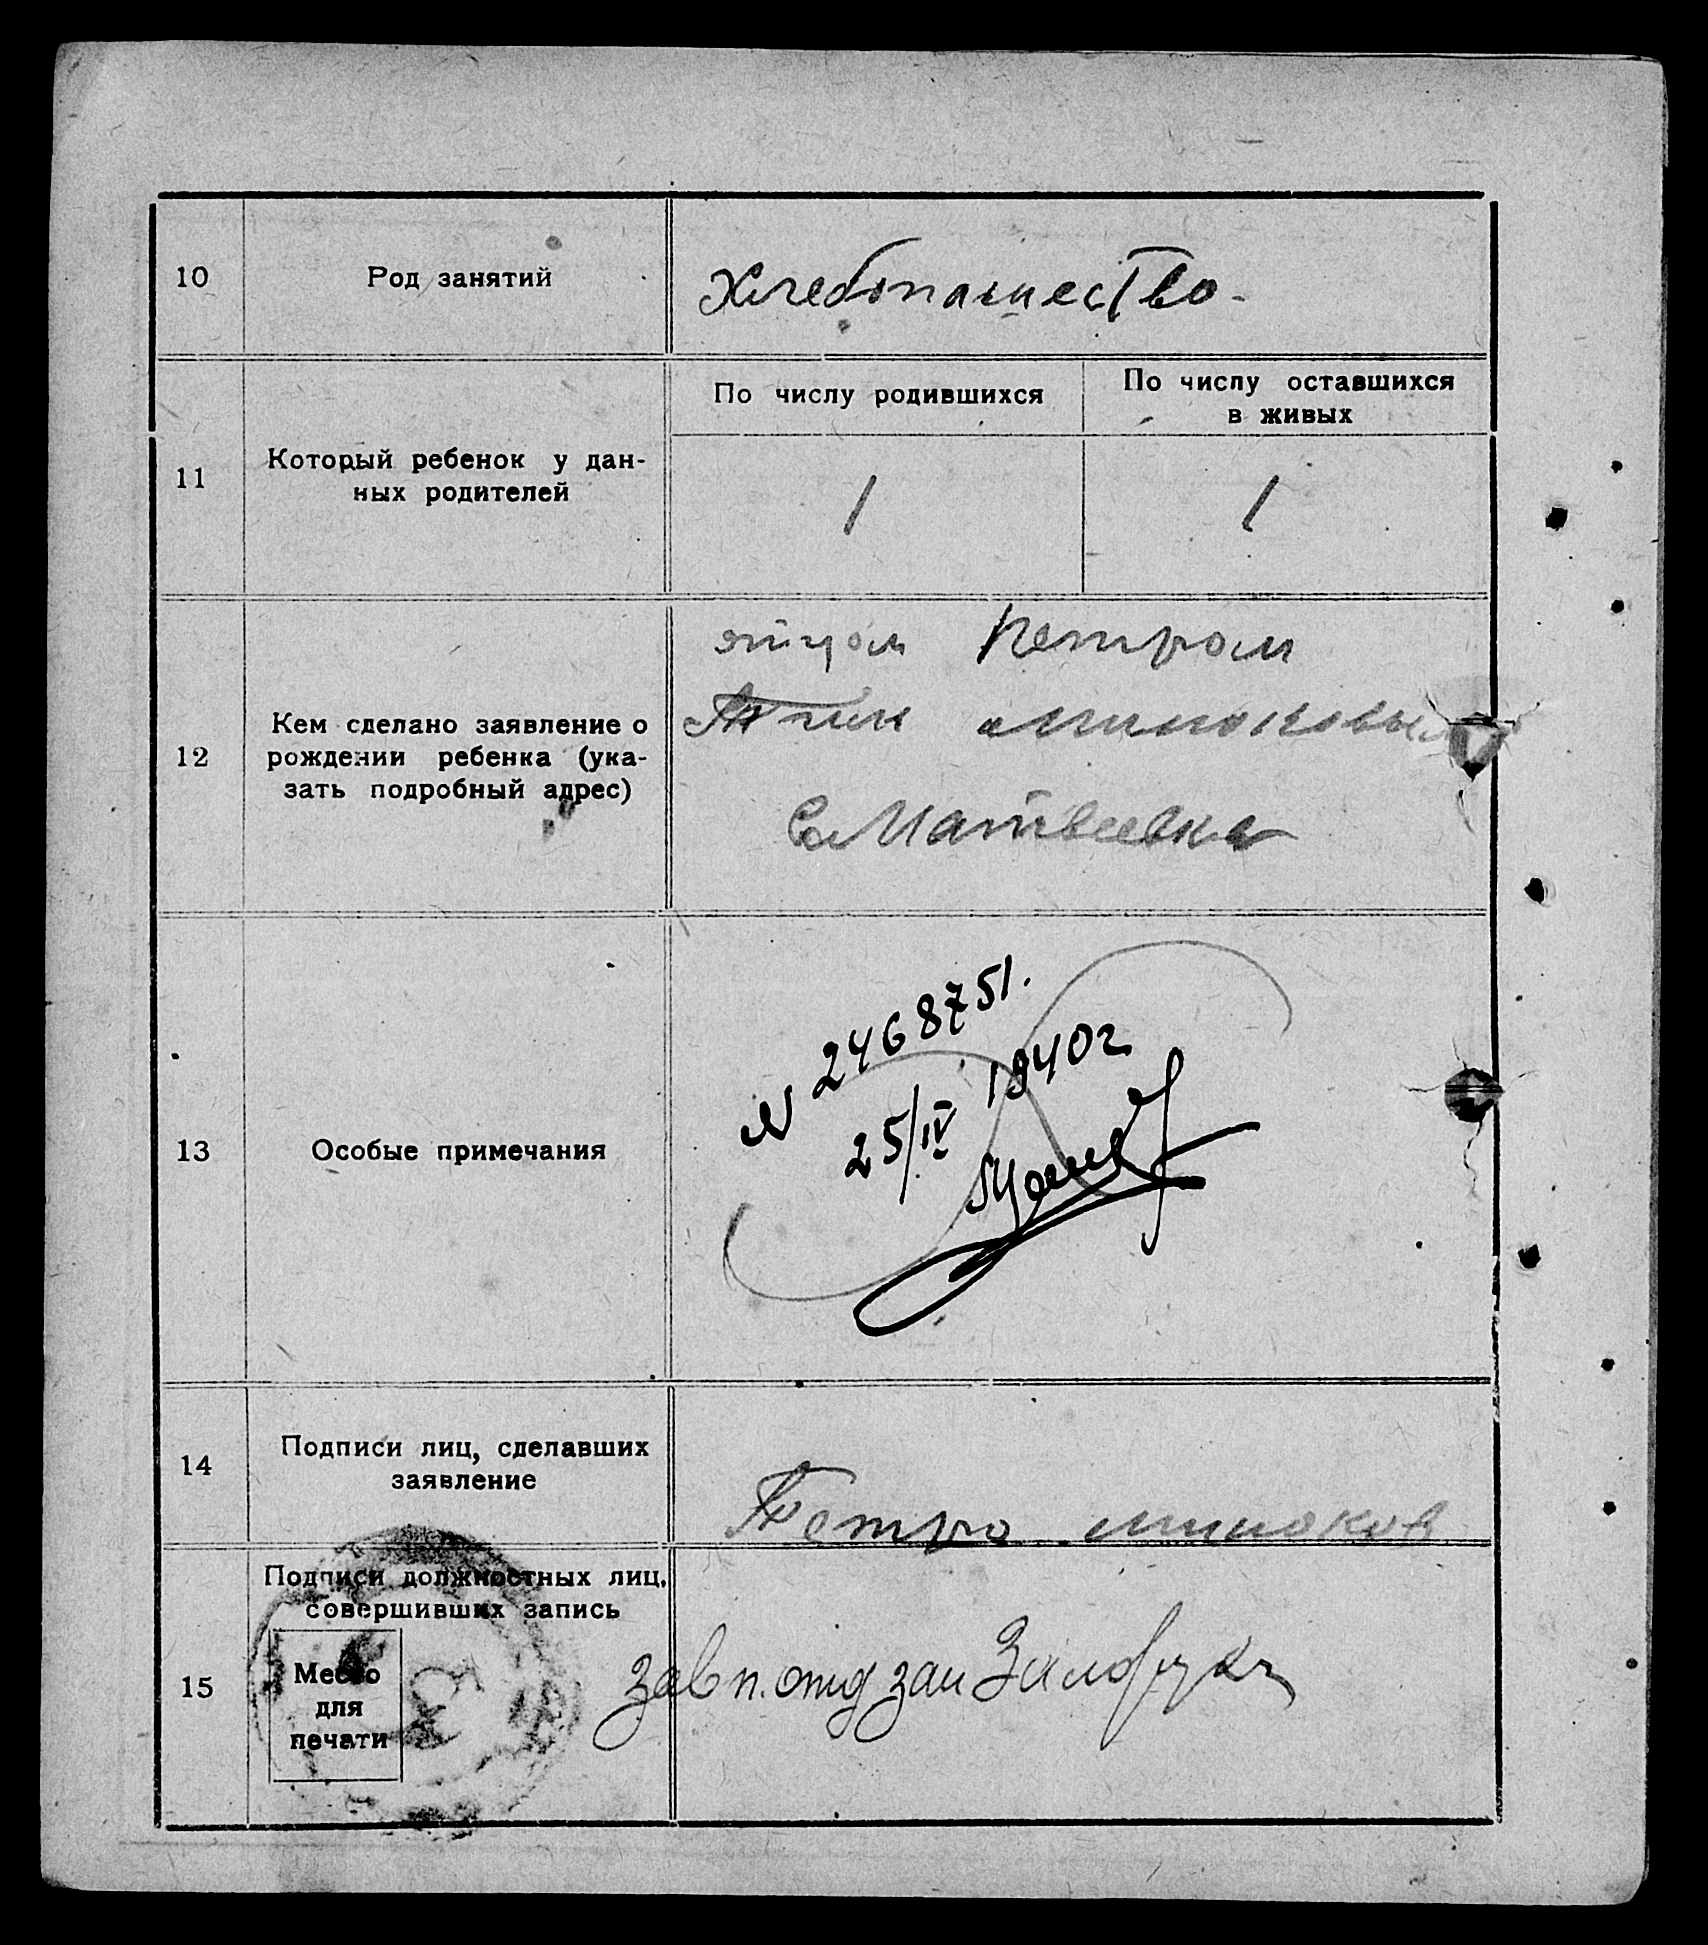 10
Род занятий
Хлебопашество.
11
Который ребенок у дан-
ных родителей
По числу родившихся
По числу оставшихся
в живых
1
1
12
Кем сделано заявление о
рождении ребенка (ука-
зать подробный адрес)
отцом Петром
с Матвеевка
13
Особые примечания
N 2468751.
25/IV 1940г
14
Подписи лиц, сделавших
заявление
Петро
15
Подписи должностных лиц,
совершивших запись
Место
для
печати
зав п. отд заг